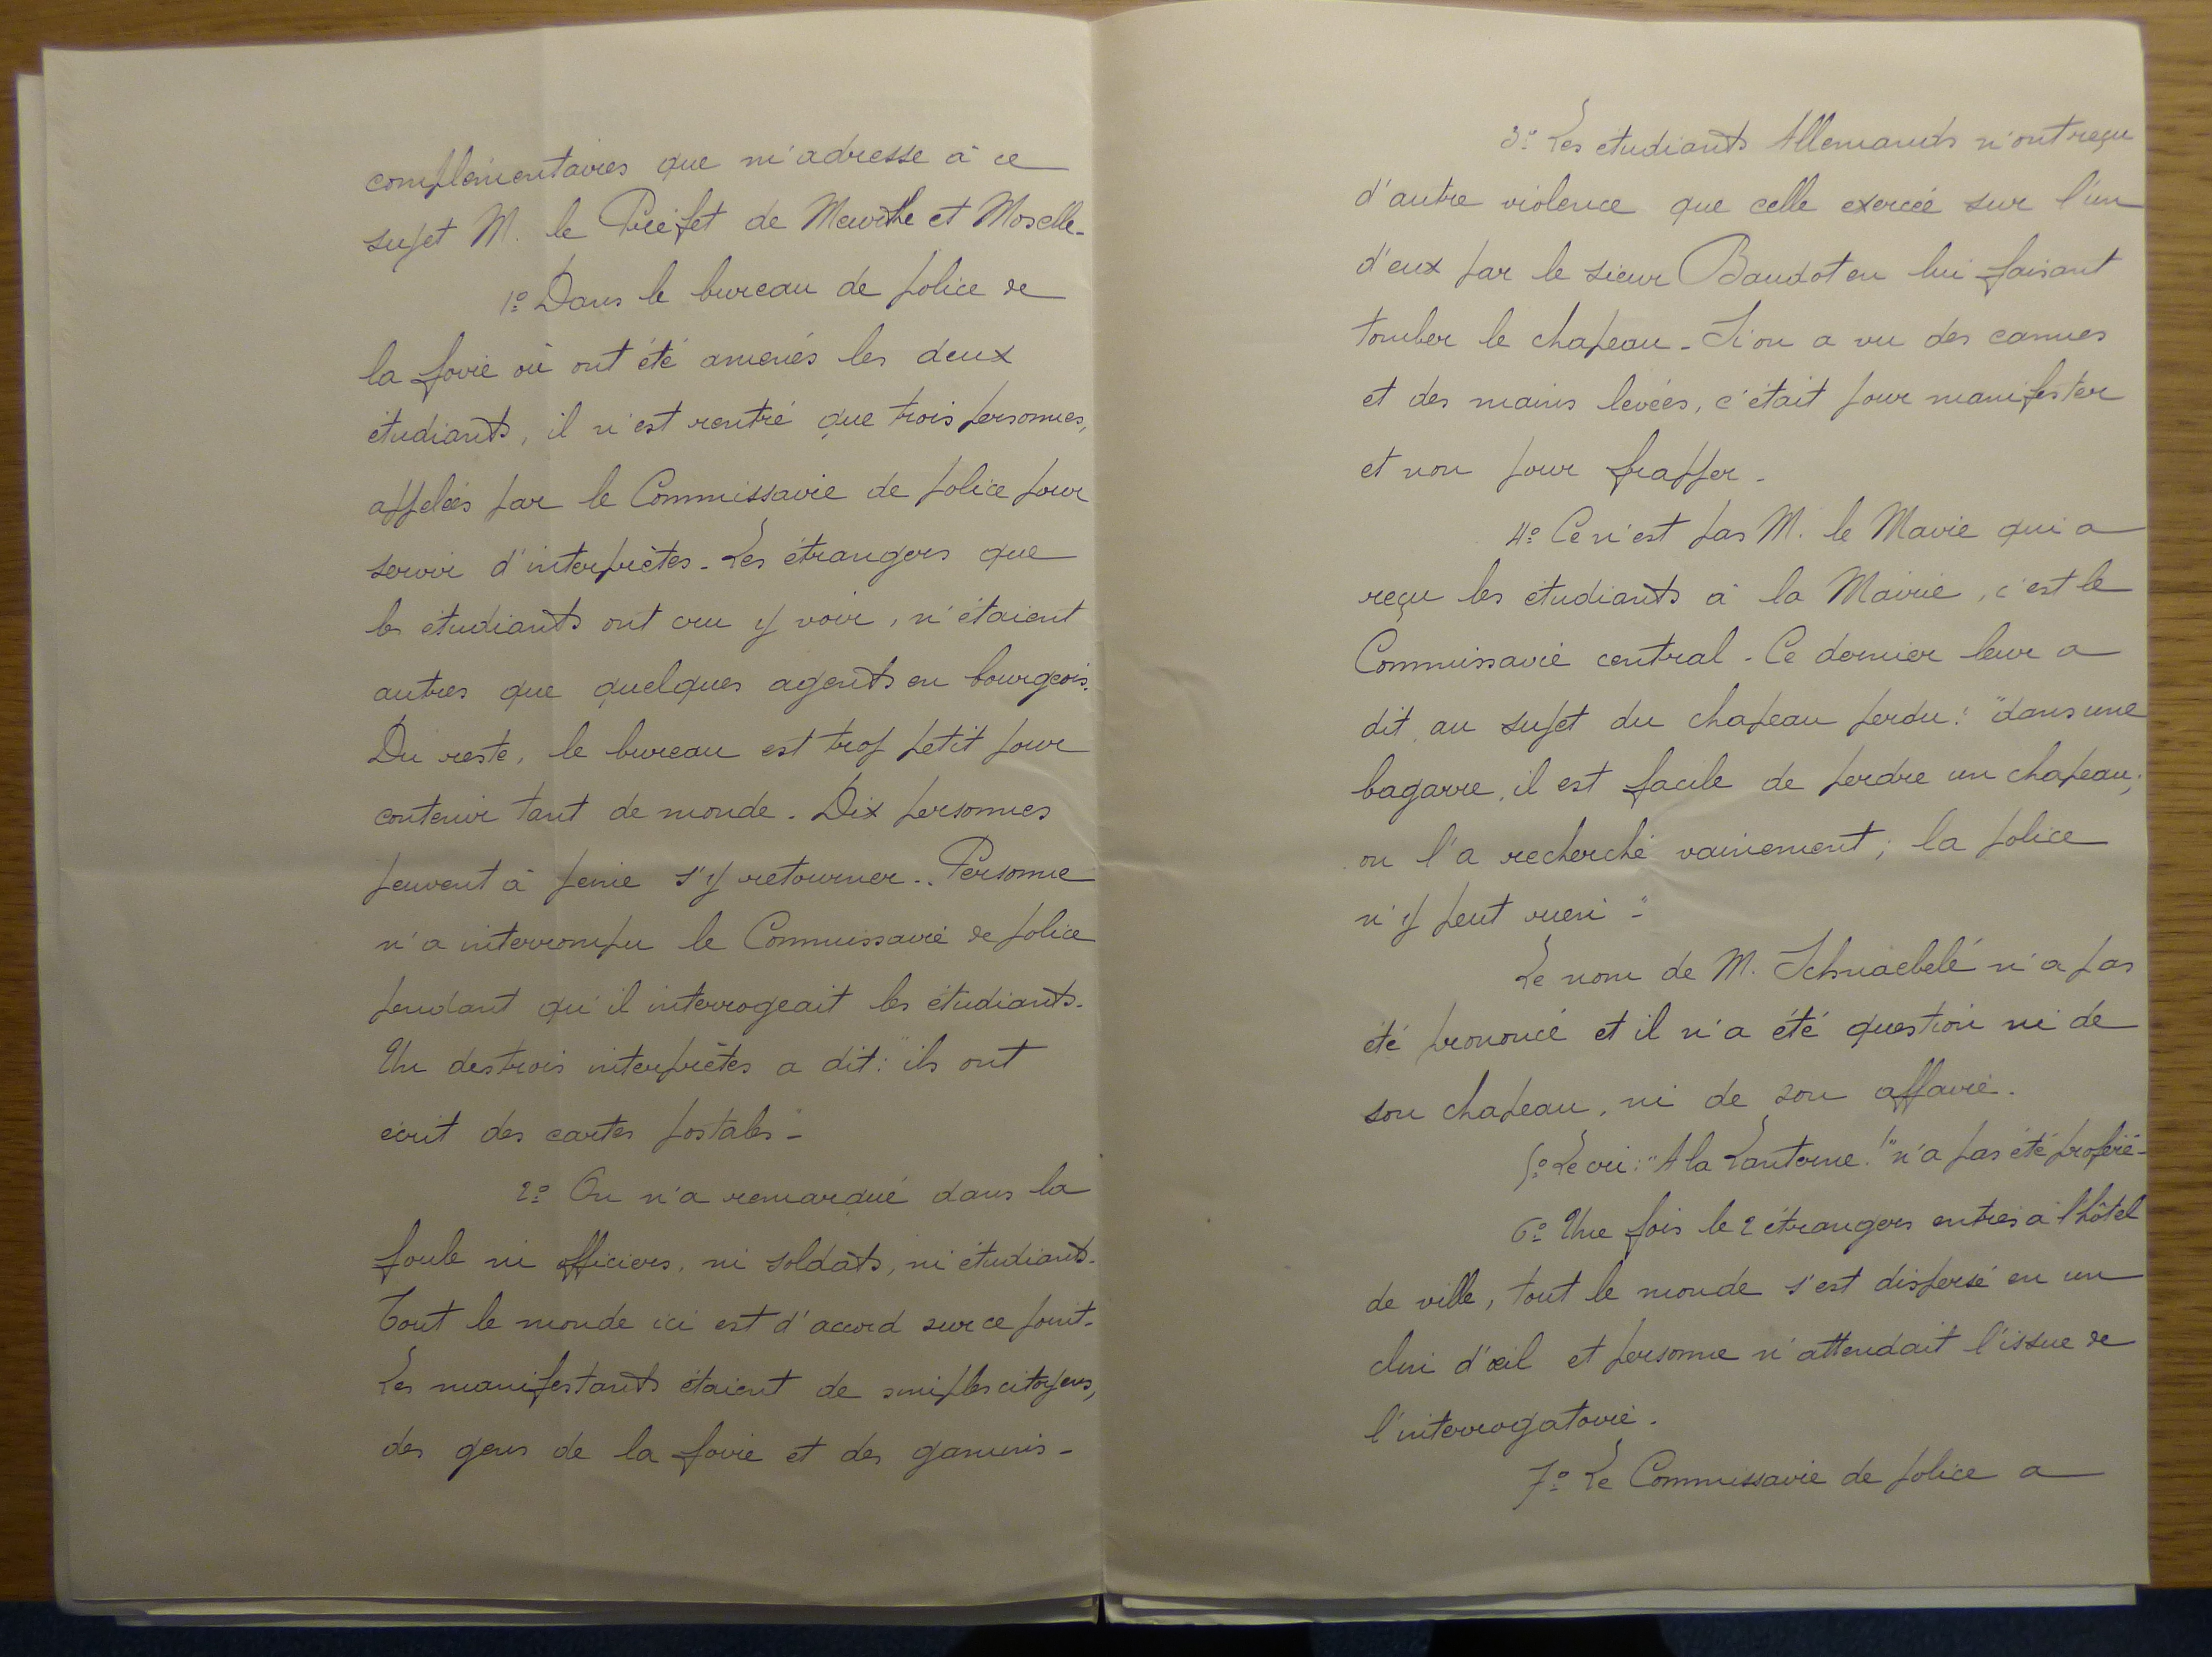 complémentaires que m'adresse à ce
sujet M. le Préfet de Meurthe et Moselle.
1º Dans le bureau de police de
la foire où ont été amenés les deux
étudiants, il n'est rentré que trois personnes,
appelées par le Commissaire de police pour
servir d'interprètes. Les étrangers que
les étudiants ont cru y voir, n'étaient
autres que quelques agents en bourgeois.
Du reste, le bureau est trop petit pour
contenir tant de monde. Dix personnes
peuvent à peine s'y retourner. Personne
n'a interrompu le Commissaire de police
pendant qu'il interrogeait les étudiants.
Un des trois interprètes a dit: "ils ont
écrit des cartes postales"
2º On n'a remarqué dans la
foule ni officiers, ni soldats, ni étudiants.
Tout le monde ici est d'accord sur ce point.
Les manifestants étaient de simples citoyens,
des gens de la foire et des gamins.
3º Les étudiants Allemands n'ont reçu
d'autre violence que celle exercée sur l'un
d'eux par le sieur Baudot en lui faisant
tomber le chapeau. Si on a vu des cannes
et des mains levées, c'était pour manifester
et non pour frapper.
4º Ce n'est pas M. le Maire qui a
reçu les étudiants à la Mairie, c'est le
Commissaire central. Ce dernier leur a
dit au sujet du chapeau perdu: "dans une
bagarre, il est facile de perdre un chapeau;
on l'a recherché vainement; la police
n'y peut rien".
Le nom de M. Schnaebelé n'a pas
été prononcé et il n'a été question ni de
son chapeau, ni de son affaire.
5º Le cri: "A la Lanterne!" n'a pas été proféré.
6º Une fois le 2 étrangers entrés à l'hôtel
de ville, tout le monde s'est dispersé en un
clin d'œil et personne n'attendait l'issue de
l'interrogatoire.
7º Le Commissaire de police a